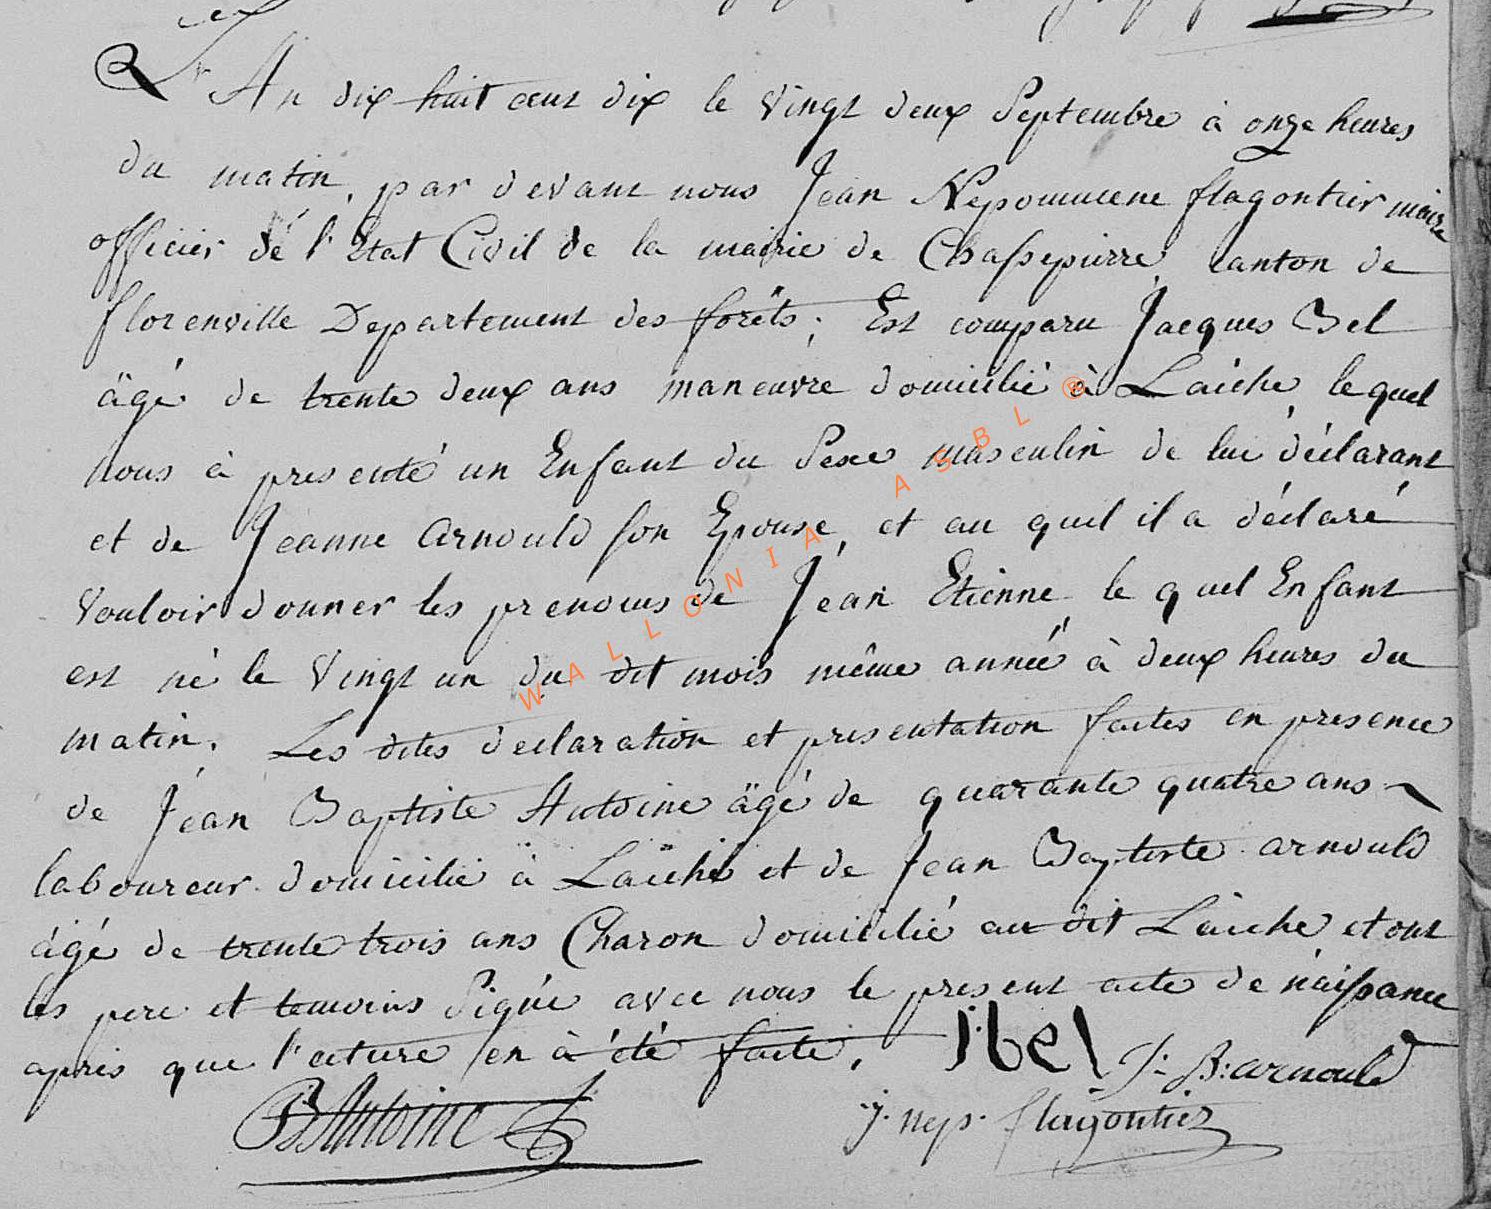 L'An dix huit cent dix le vingt deux Septembre à onze heures
du matin, par devant nous Jean Nepomucene flagontier maire
officier dé l'Etat Civil de la mairie de Chassepierre, canton de
florenville Departement des forêts; Est comparu Jacques Bel
âgé de trente deux ans maneuvre domicilié à Laiche, le quel
nous à presenté un Enfant du Sexe masculin de lui déclarant
et de Jeanne Arnould son Epouse, et au quel il a déclaré
vouloir donner les prenoms de Jean Etienne, le quel Enfant
est né le vingt un du dit mois même année à deux heures du
matin. Les dites declaration et presentation faites en presence
de Jean Baptiste Antoine âgé de quarante quatre ans
laboureur domicilié à Laiche et de Jean Baptiste arnould
âgé de trente trois ans Charon domicilié au dit Laiche, et ont
les pere et temoins Signé avec nous le present acte de naissance
apris que l'ecture en à été faite.
J:bel J: B: arnould
JBAntoine J. nep. flagontier
WALLONIA ASBL ®